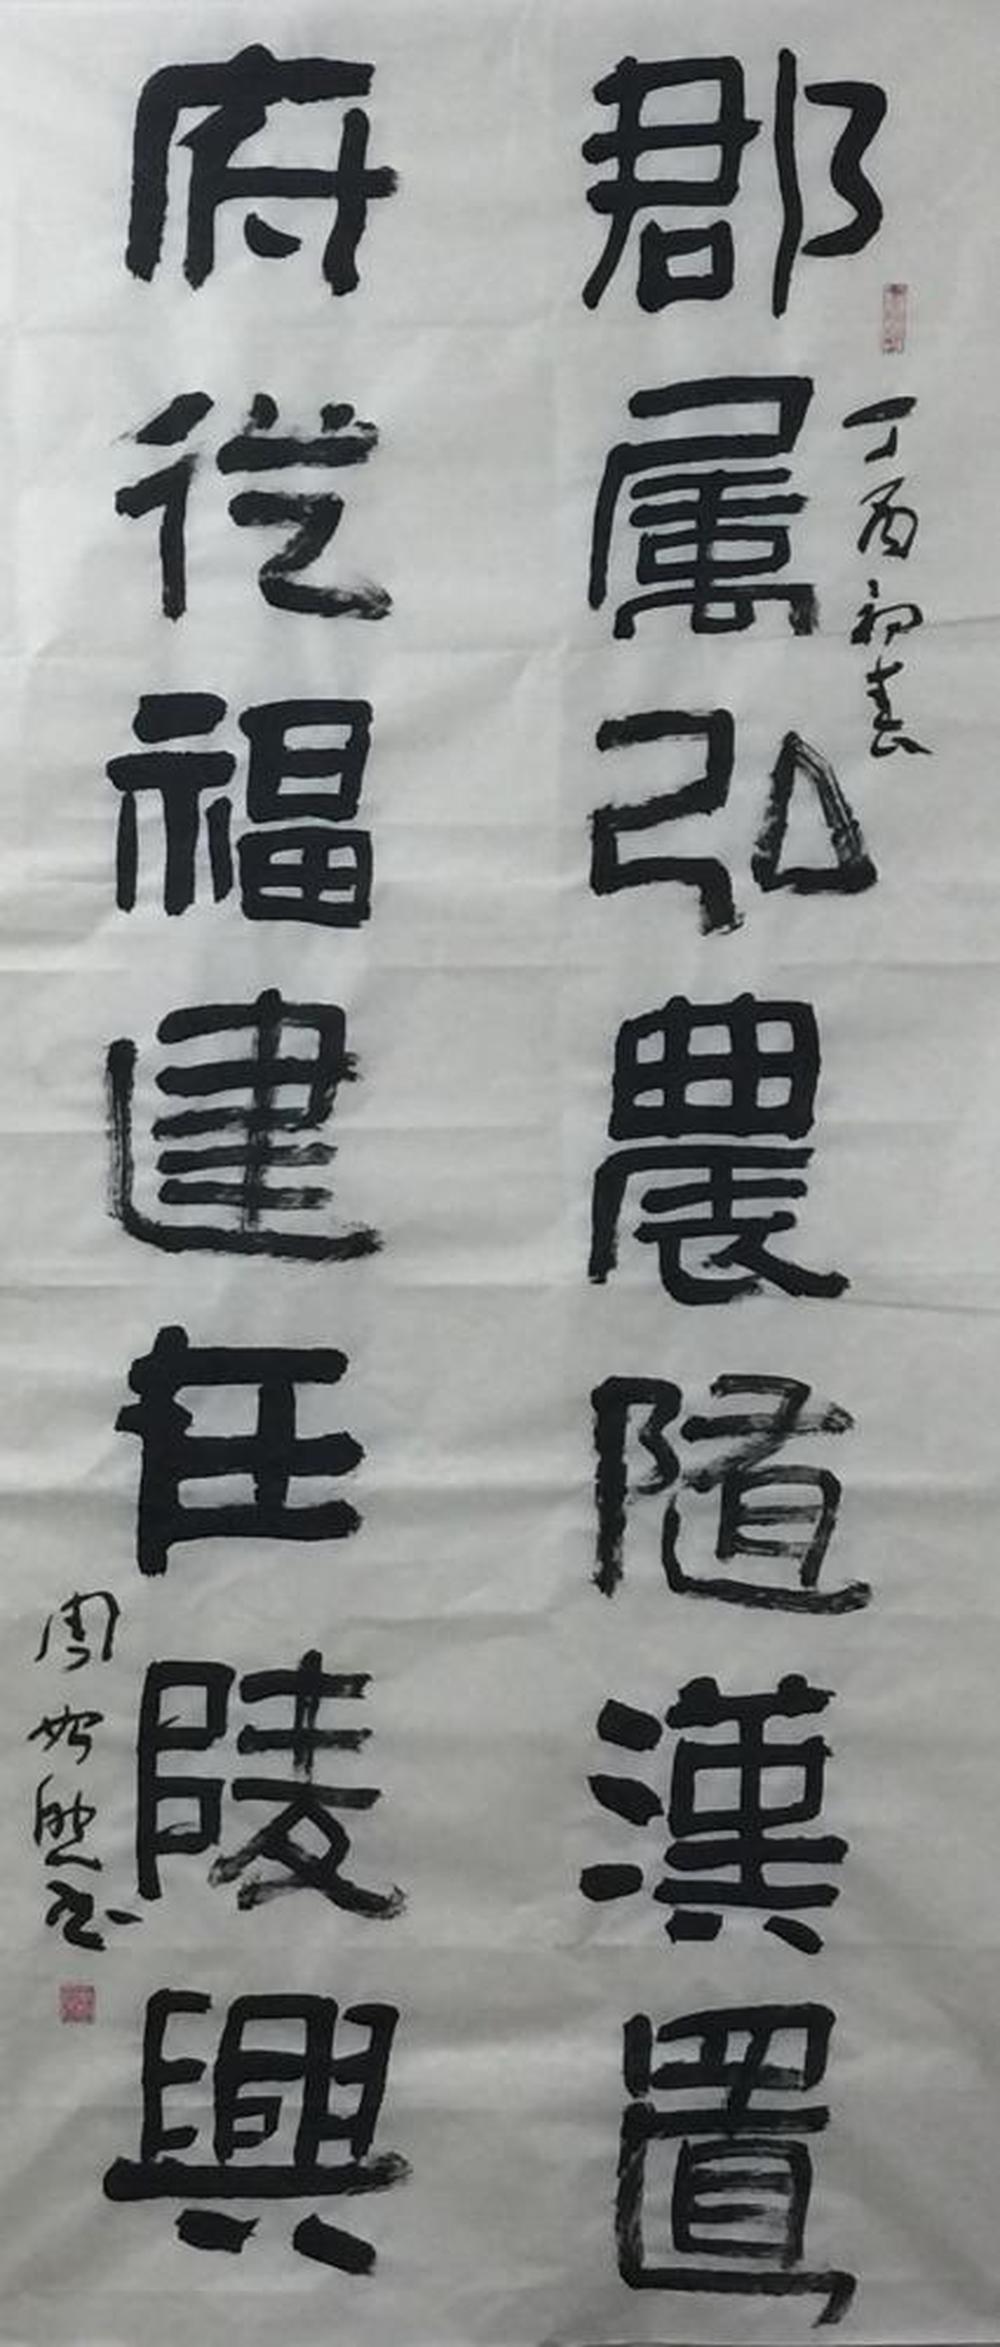 郡属弘農隨漢置
丁酉初春
府從福建在陵興
周
書